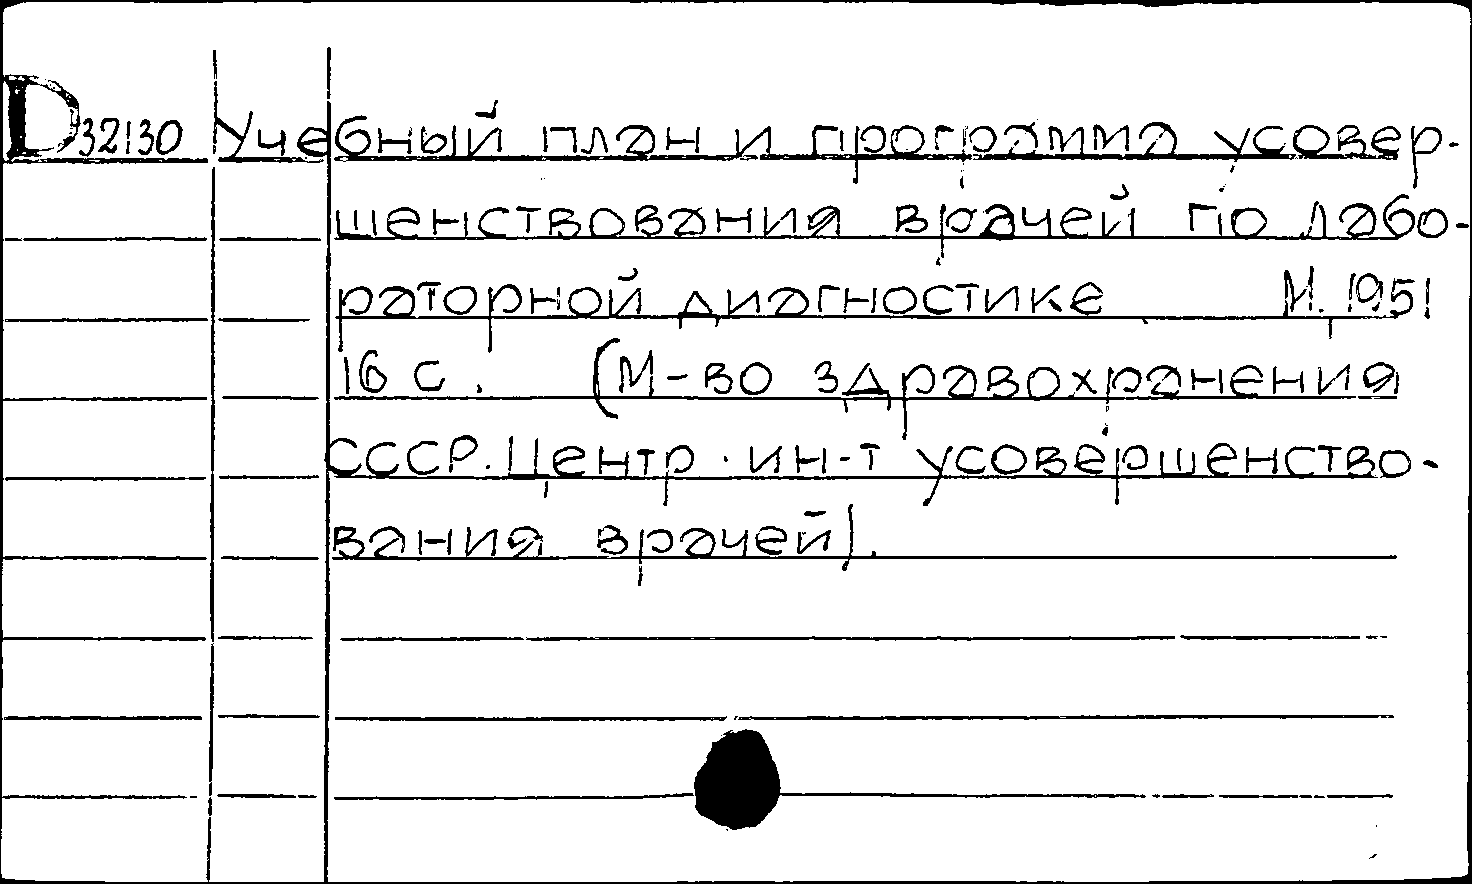 D32130 Учебный план и программа усовер-
шенствования врачей по лабо-
раторной диагностике М. 1951
16 с. (М-во здравохранения
СССР. Центр. ин-т усовершенство-
вания врачей).